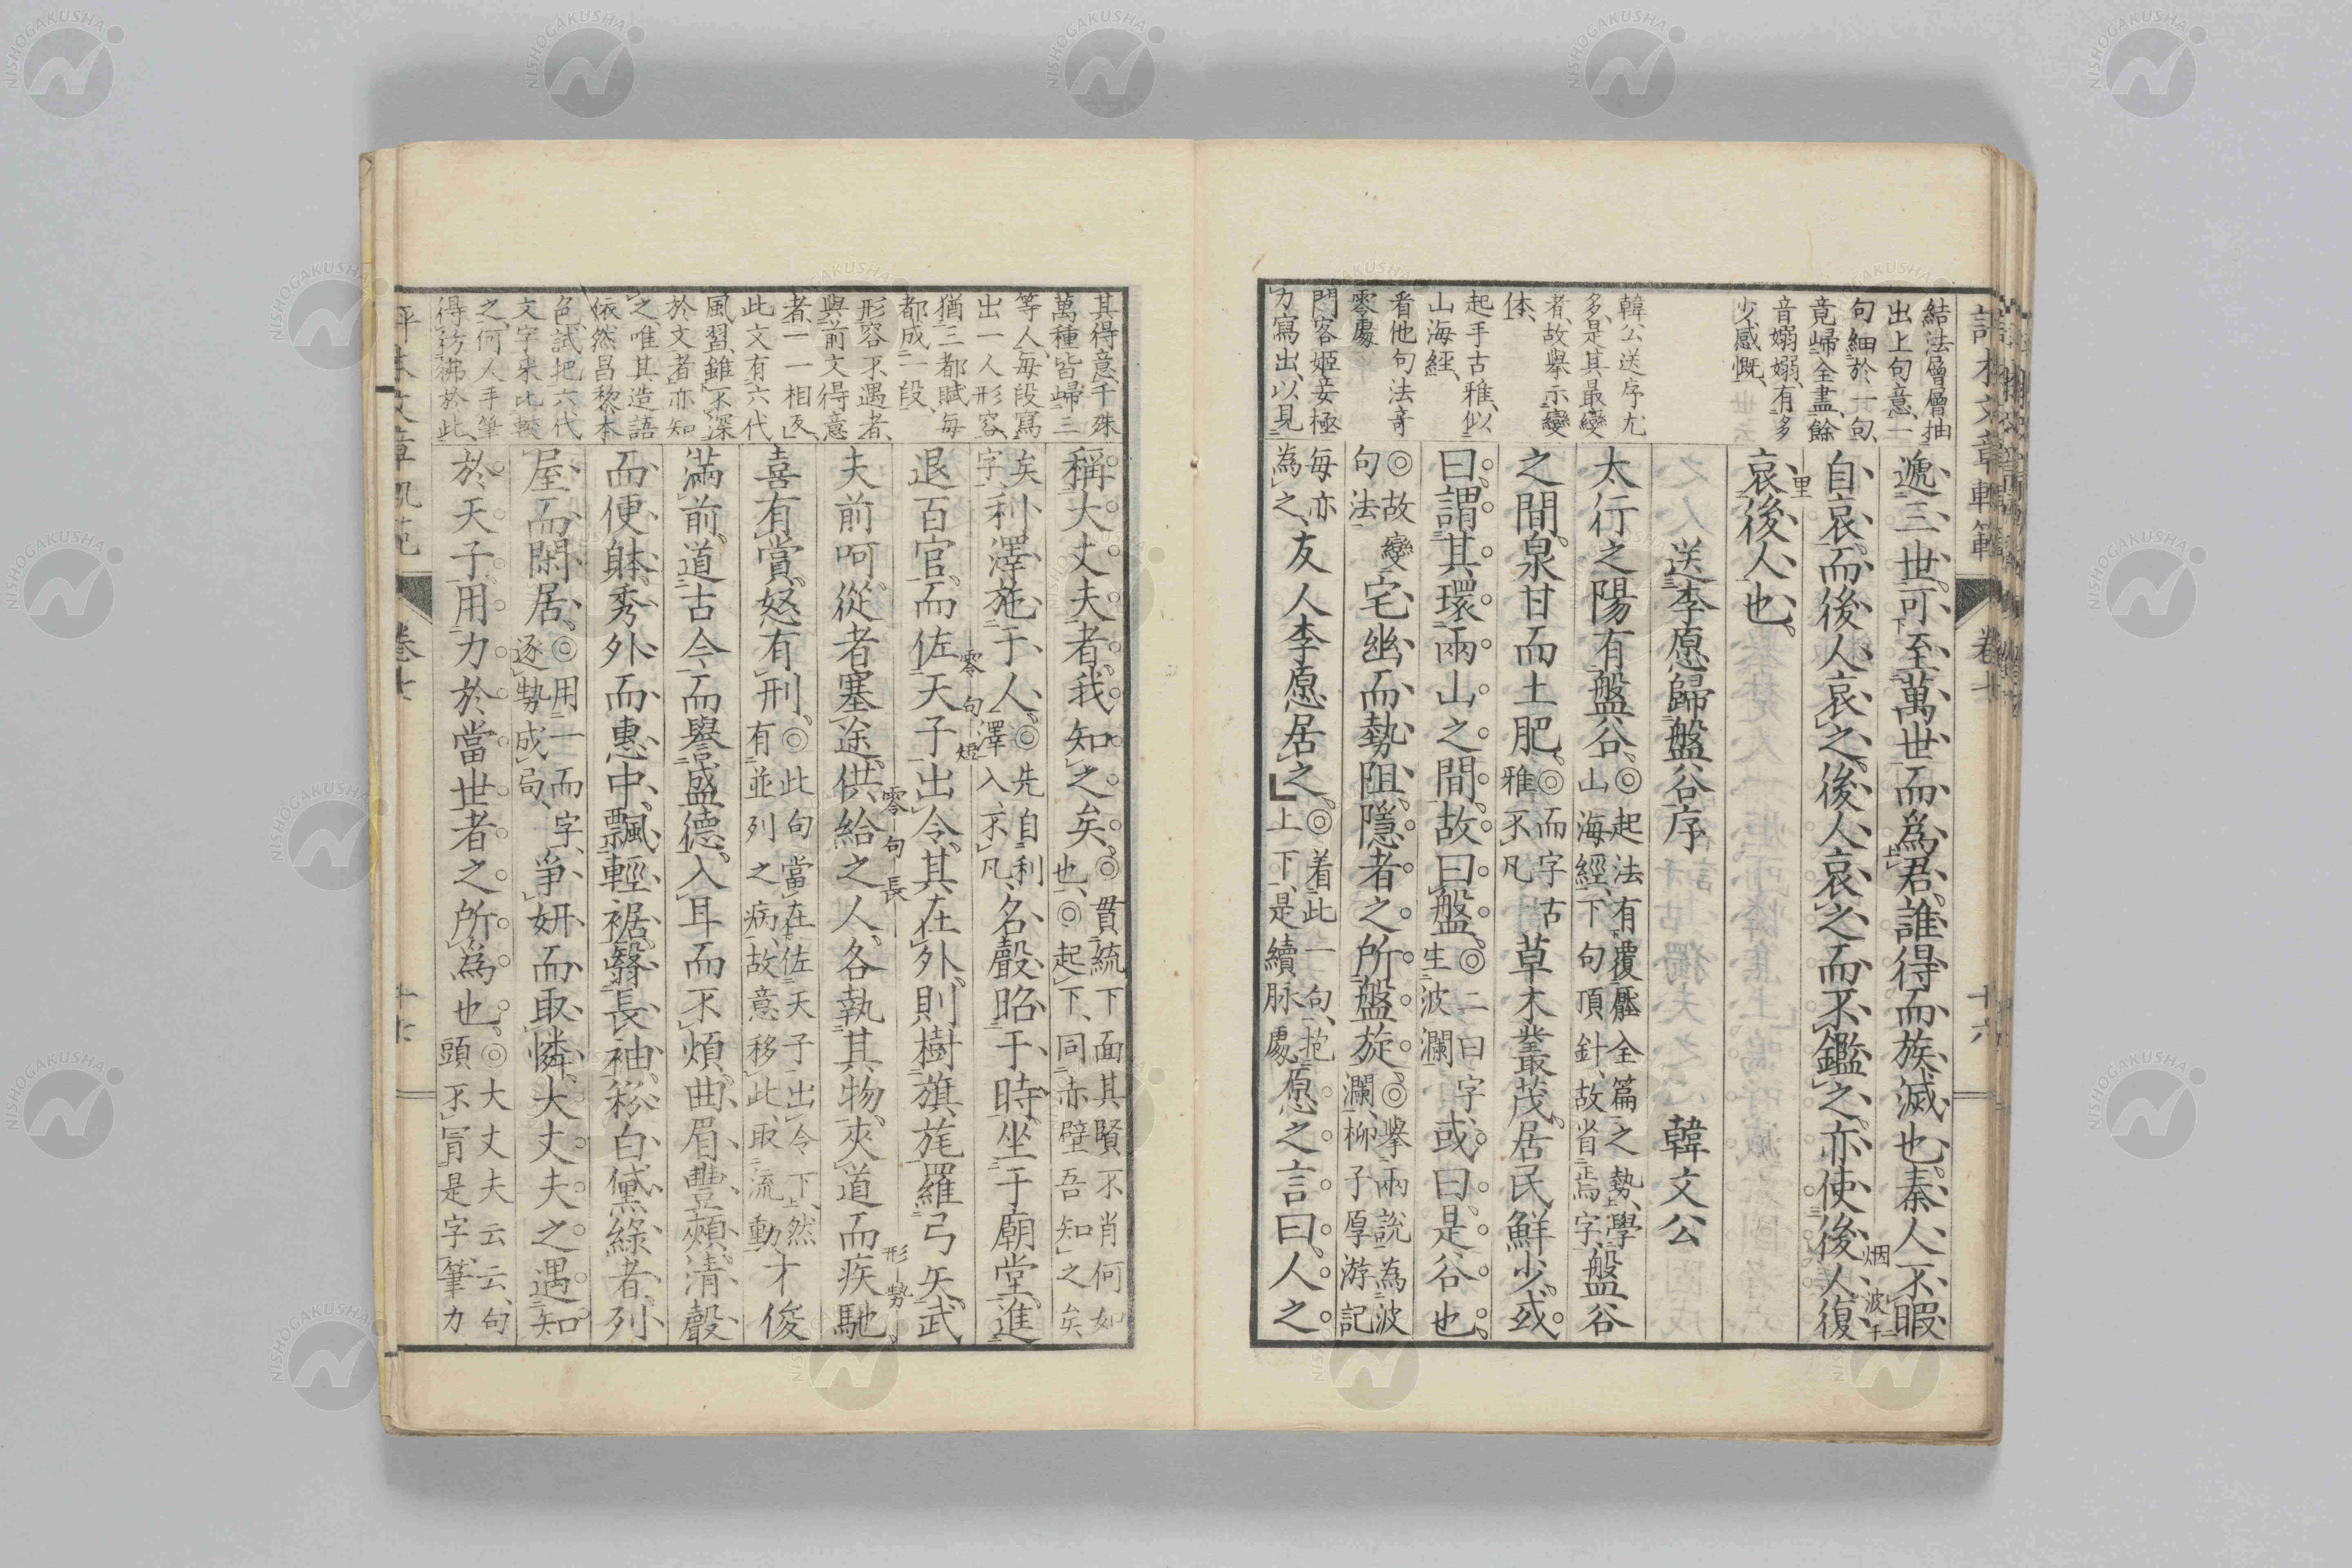 結法層層抽
出上句意一
句細於一句
竟歸全盡餘
音嫋嫋有多
少感慨
韓公送序尤
多是其最變
者故擧示變
体
起手古雅似
山海經
看他句法奇
零處
門客姬妾極
力寫出以見
遞三世可至萬世而爲君誰得而族滅也秦人不暇
自哀而後人哀之後人哀之而不鑑之亦使後人復
烟波千
里
哀後人也
送李愿歸盤谷序 韓文公
太行之陽有盤谷◎起法有覆壓全篇之勢學
山海經下句頂針故省焉字盤谷
之間泉甘而土肥◎而字古
雅不凡草木藂茂居民鮮少或
曰謂其環兩山之間故曰盤◎二曰字
生波瀾或曰是谷也
◎故變
句法宅幽而勢阻隱者之所盤旋◎擧兩說為波
瀾柳子厚游記
每亦
為之友人李愿居之◎着此一句抱
上下是續脉處愿之言曰人之
評本文章軌範 卷七 十六
其得意千殊
萬種皆歸三
等人每段寫
出一人形容
猶三都賦每
都成一段
形容不遇者
與前文得意
者一一相反
此文有六代
風習雖不深
於文者亦知
之唯其造語
依然昌黎本
色試把六代
文字來比較
之何人手筆
得彷彿於此
稱大丈夫者我知之矣◎貫統下面其賢不肖何如
也◎起下同赤壁吾知之矣
矣
字利澤施于人◎先自利
澤入不凡名聲昭于時坐于廟堂進
退百官而佐天子出令其在外則樹旗旄羅弓矢武
零句短
夫前呵從者塞途供給之人各執其物夾道而疾馳
零句長
形勢
喜有賞怒有刑◎此句當在佐天子出令下然
有並列之病故意移此取流動才俊
滿前道古今而譽盛德入耳而不煩曲眉豐頰清聲
而便體秀外而惠中飄輕裾翳長袖粉白黛綠者列
屋而閑居◎用一而字
逐勢成局爭姸而取憐大丈夫之遇知
於天子用力於當世者之所為也◎大丈夫云云句
頭不冐是字筆力
評本文章軌範 卷七 十七